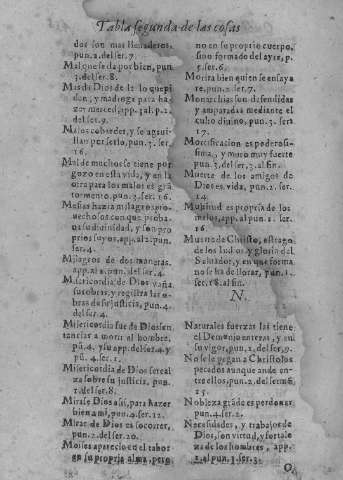 Tabla segunda de las cosas
dos son mas llenaderos,
pun.2.del ser.7.
Mal que se da por bien, pun.
3.del ser.8.
Mas da Dios de lo que pi
den, y madruga para ha
zer merced, app. al p.12.
del ser.9.
Malos cobardes, y se aguzi
llan por serlo, pun.3. ser.
16.
Mal de muchos se tiene por
gozo en esta vida, y en la
otra para los malos es gra
tormento. pun.3. ser.16.
Mesias hazia milagros pro-
uechosos con que proba-
ua su diuinidad, y son pro
prios suyos, app. al 2. pun.
ser.4.
Milagros de dos maneras.
app. al 2. pun. del ser.4.
Misericordia de Dios vaña
sus obras, y registra las o-
bras de su justicia, pun.4.
del ser.4.
Misericordia fue de Dios sen
tenciar a morir al hombre,
pú.4. y su app. del ser.4. y
pú.4. ser.1.
Misericordia de Dios se real
za sobre su justicia, pun.
1.del ser.8.
Mirase Dios a si, para hazer
bien a mi, pun.4. ser.12.
Mirar de Dios es socorrer,
pun.2.del ser.20.
Moises aparecio en el tabor
en su propria alma, pero
no en su proprio cuerpo,
sino formado del ayre, p.
5.ser.6.
Morira bien quien se ensaya
re, pun.2. ser.7.
Monarchias son defendidas
y amparadas mediante el
culto diuino, pun.3. ser.
17.
Mortificacion es poderosis-
sima, y muro muy fuerte
pun.3.del ser.3. al fin.
Muerte de los amigos de
Dios es vida, pun.2. ser.
14.
Multitud es propria de los
malos, app. al pun.1. ser.
16.
Muerte de Christo, estrago
de los Iudios, y gloria del
Saluador, y en que forma
no se ha de llorar, pun.1.
ser.18. al fin.
N.
Naturales fuerzas las tiene
el Demonio enteras, y en
su vigor, pun.2. del ser.9.
No se le pegan a Christo los
pecados aunque ande en-
tre ellos, pun.2. del serm.6.
25.
Nobleza grãde es perdonar
pun.4. ser.2.
Necesidades, y trabajos de
Dios, son virtud, y fortale
za de los hombres, app.
2. al pun.1. ser.3.
O